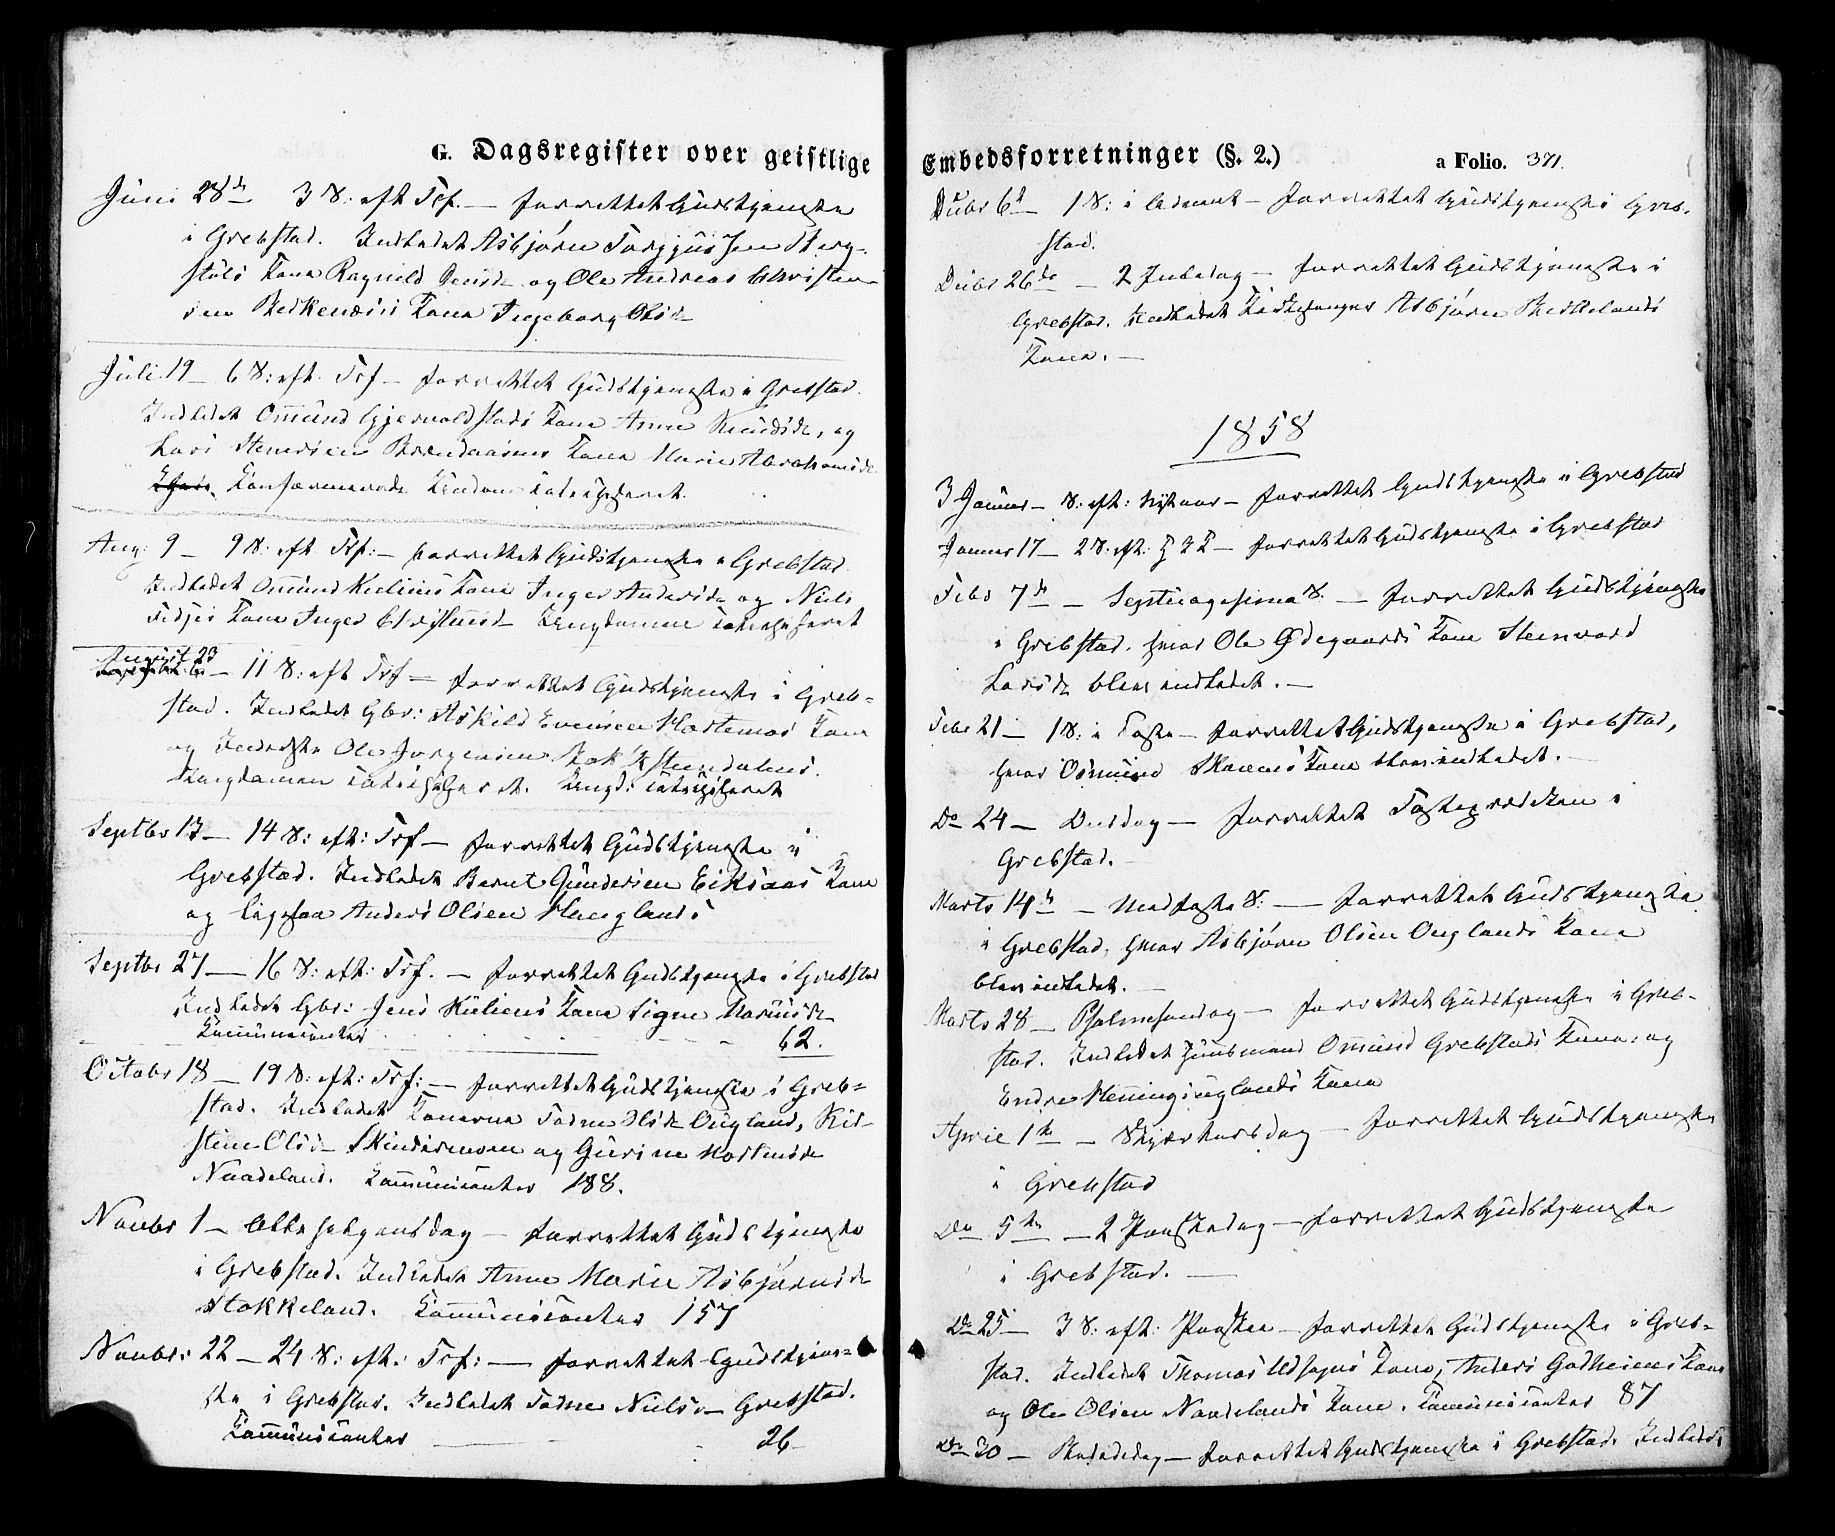 G. Dagsregister over geistlige
Juni 28de 3 S: eft Trf. — forrettet Gudstjeneste
i Grebstad. Indledet Asbjørn Torgjussen
Kone Ragnild og Ole Andreas Christen-
sen Kone Ingeborg Olsdr
Juli 19 — 6 S: eft. Trf — forrettet Gudstjeneste i Grebstad.
Indledet Omund Gjervoldstads Kone Anne Knudsdr, og
Lars Brændaasens Kone Marie Abrahamsdr
Konfirmerede Ungdom katechiseret.
Aug: 9 — 9 S: eft Trf: — forrettet Gudstjeneste i Grebstad.
Indledet Omund Kone Inger Andersdr og Niels
Kone Inger Ungdommen katechiseret
August 23
— 11 S: eft Trf — forrettet Gudstjeneste i Greb-
stad. Indledet Gbr: Askild Evensen Kone
og Inderste Ole Jørgensen
Ungdommen katechiseret. Ungd: katechiseret
Septbr 13 — 14 S: eft: Trf — forrettet Gudstjeneste i
Grebstad. Indledet Bernt Gundersen Eiksaas Kone
og Anders Olsen Hauglands
Septbr 27 — 16 S: eft: Trf. — forrettet Gudstjeneste i Grebstad
Indledet Gbr: Jens Kone Signe Rasmusdr
Kommunicanter 62.
Octobr 18 — 19 S: eft: Trf: — forrettet Gudstjeneste i Greb-
stad. Indledet Konerne Todne Olsdr Ougland, Kir-
stine Olsdr og Gurine Mortensdr
Naadeland. Kommunicanter 188.
Novbr 1 — Allehelgensdag — forrettet Gudstjeneste
i Grebstad. Indledet Anne Marie Asbjørnsdr
Stokkeland. Kommunicanter 157
Novbr: 22 — 24 S: eft: Trf: — forrettet Gudstjene-
ste i Grebstad. Indledet Todne Nielsdr Grebstad.
Kommunicanter 26
Embedsforretninger (§. 2.) a Folio. 371.
Decbr 6te — 1 S: i Advent — forrettet Gudstjeneste i Greb-
stad.
Decbr 26de — 2 Juledag — forrettet Gudstjeneste i
Grebstad. Indledet Asbjørn
Kone. —
1858
3 Januar — S: eft: Nytaar — forrettet Gudstjeneste i Grebstad
Januar 17 — 2 S: eft. H 3 K — forrettet Gudstjeneste i Grebstad
Febr 7de — Septuagesima S. — forrettet Gudstjeneste
i Grebstad. hvor Ole Ødegaards Kone Steinvord
Larsdr blev indledet. —
Febr 21 — 1 S: i Faste — forrettet Gudstjeneste i Grebstad,
hvor Osmund Kone blev indledet. —
Do 24 — Onsdag — forrettet Fasteprædiken i
Grebstad. —
Marts 14de — Midfaste S: — forrettet Gudstjeneste
i Grebstad, hvor Asbjørn Olsen Ouglands Kone
blev indledet. —
Marts 28 — Palmesøndag — forrettet Gudstjeneste i Greb-
stad. Indledet Huusmand Omund Grebstads Kone, og
Endre Kone
April 1ste — Skjærtorsdag — forrettet Gudstjeneste
i Grebstad
Do 5te — 2 Paaskedag — forrettet Gudstjeneste
i Grebstad. —
Do 25 — 3 S: eft: Paaske — forrettet Gudstjeneste i Greb-
stad. Indledet Thomas Kone, Anders Godheiens Kone
og Ole Olsen Naadelands Kone. Kommunicanter 87
Do 30 — Bededag — forrettet Gudstjeneste i Grebstad. Indledet